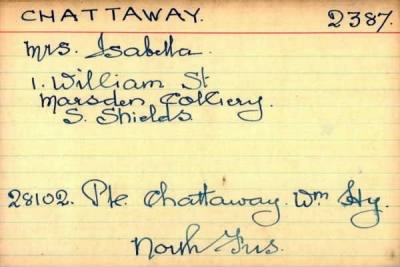 CHATTAWAY. 2387.
Mrs. Isabella.
1. William St
Marsden Colliery.
S. Shields.
28102. Pte. Chattaway. Wm Hy.
North Fus.